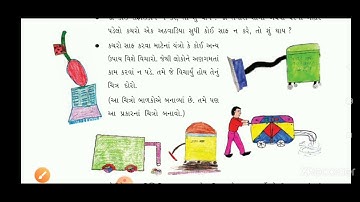 પડેલો કચરો એક અઠવાડિયા સુધી કોઈ સાફ ન કરે, તો શું થાય ?
• કચરો સાફ કરવા માટેનાં યંત્રો કે કોઈ અન્ય
ઉપાય વિશે વિચારો. જેથી લોકોને અણગમતાં
કામ કરવાં ન પડે. તમે જે વિચાર્યું હોય તેનું
ચિત્ર દોરો.
(આ ચિત્રો બાળકોએ બનાવ્યાં છે. તમે પણ
આ પ્રકારનાં ચિત્રો બનાવો.)